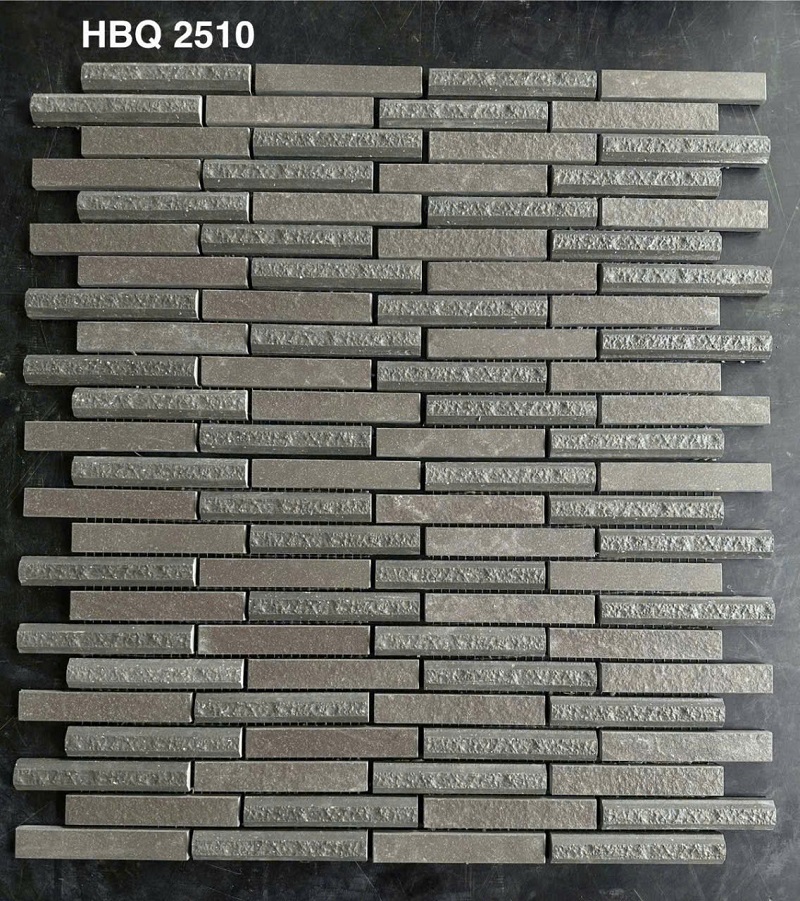 HBQ 2510